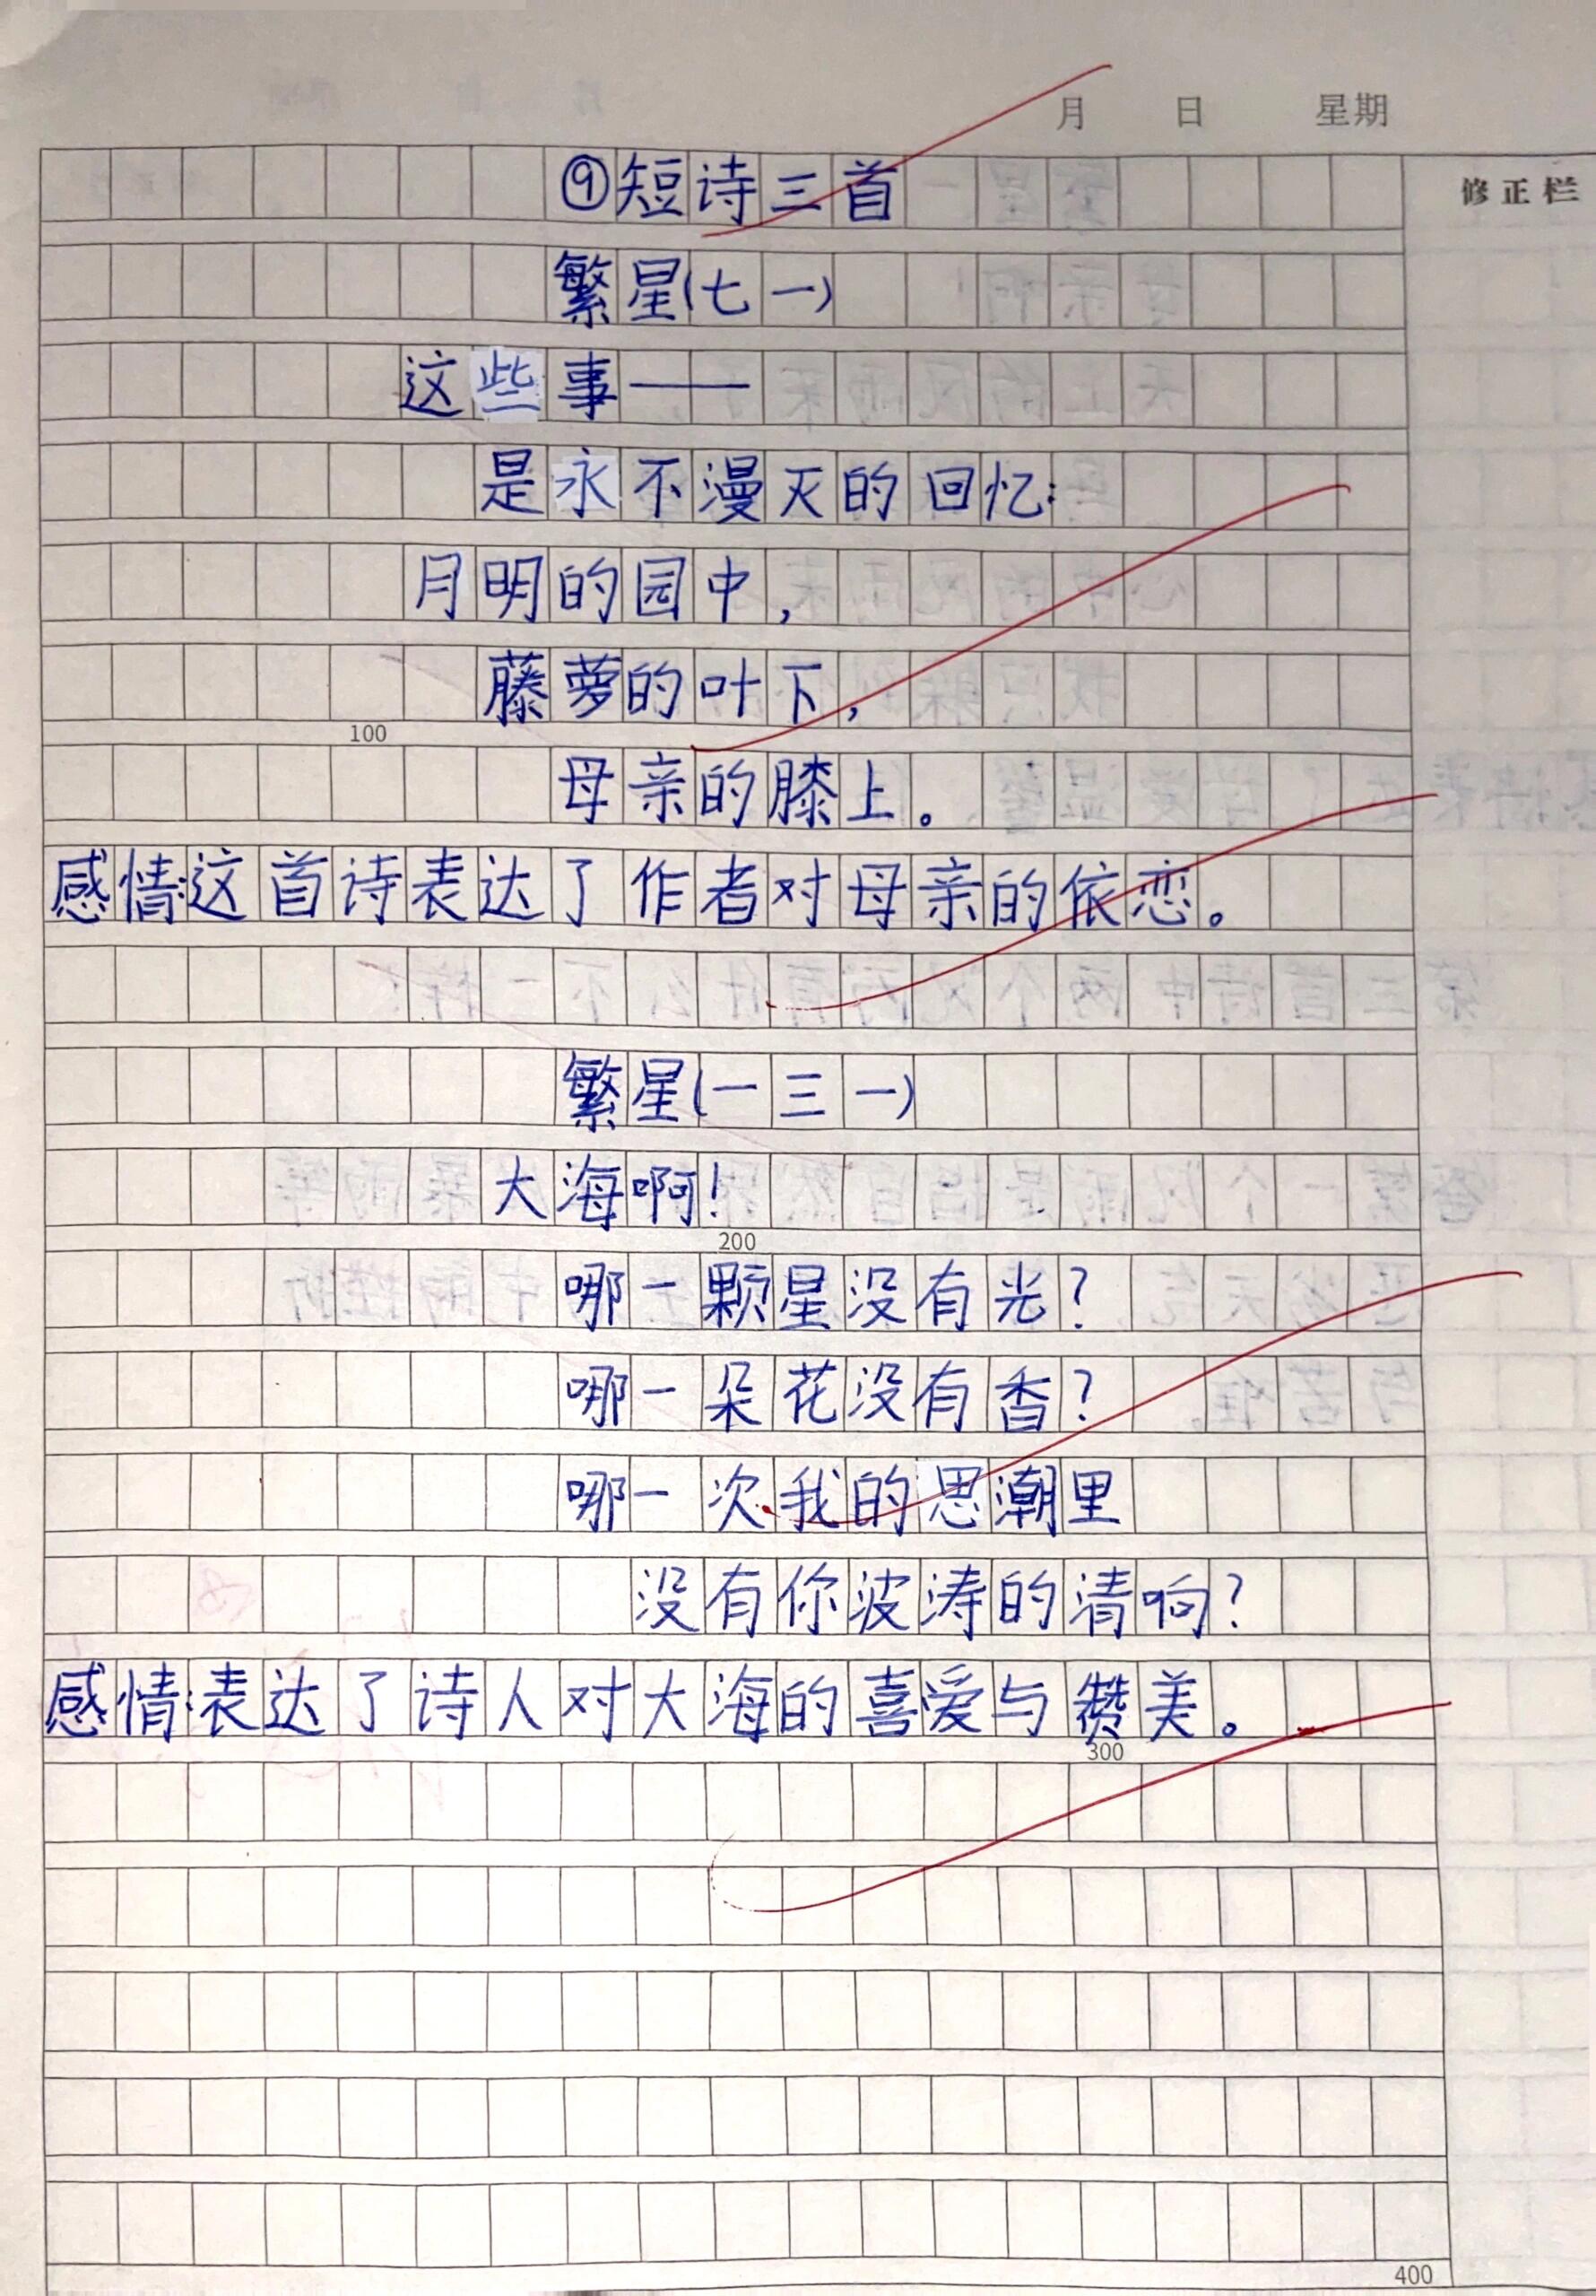 月 日 星期
修正栏
⑨短诗三首
繁星(七一)
这些事——
是永不漫灭的回忆:
月明的园中,
藤萝的叶下,
100
母亲的膝上。
感情:这首诗表达了作者对母亲的依恋。
繁星(一三一)
大海啊!
200
哪一颗星没有光?
哪一朵花没有香?
哪一次我的思潮里
没有你波涛的清响?
感情:表达了诗人对大海的喜爱与赞美。
300
400